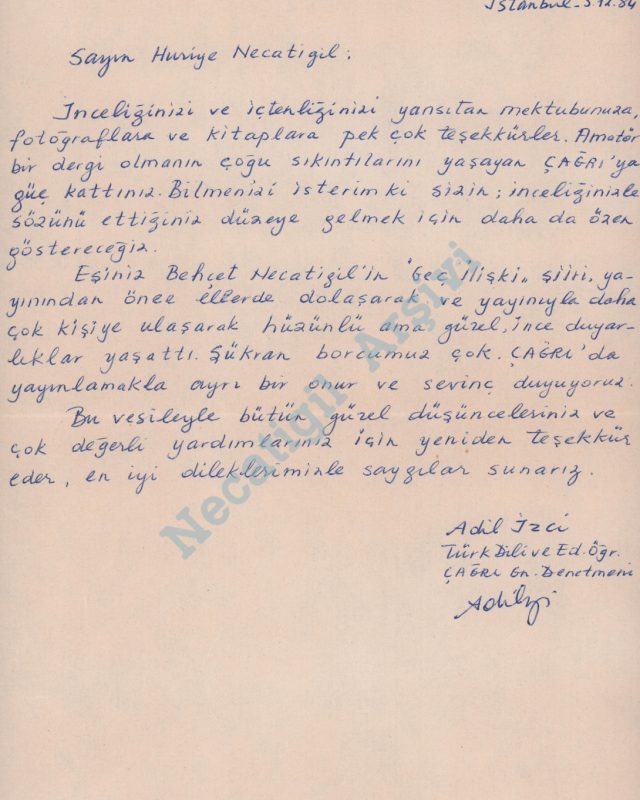 İstanbul - 5.12.84
Sayın Huriye Necatigil;
İnceliğinizi ve içtenliğinizi yansıtan mektubunuza,
fotoğraflara ve kitaplara pek çok teşekkürler. Amatör
bir dergi olmanın çoğu sıkıntılarını yaşayan ÇAĞRI'ya
güç kattınız. Bilmenizi isterim ki sizin; inceliğinizle
sözünü ettiğiniz düzeye gelmek için daha da özen
göstereceğiz.
Eşiniz Behçet Necatigil'in "Geç İlişki" şiiri, ya-
yınından önce ellerde dolaşarak ve yayınıyla daha
çok kişiye ulaşarak hüzünlü ama güzel, ince duyar-
lıklar yaşattı. Şükran borcumuz çok. ÇAĞRI'da
yayınlamakla ayrı bir onur ve sevinç duyuyoruz.
Bu vesileyle bütün güzel düşünceleriniz ve
çok değerli yardımlarınız için yeniden teşekkür
eder, en iyi dileklerimizle saygılar sunarız.
Adil İzci
Türk Dili ve Ed. Öğr.
ÇAĞRI Gn. Denetmeni
Adil İzci
Necatigil Arşivi